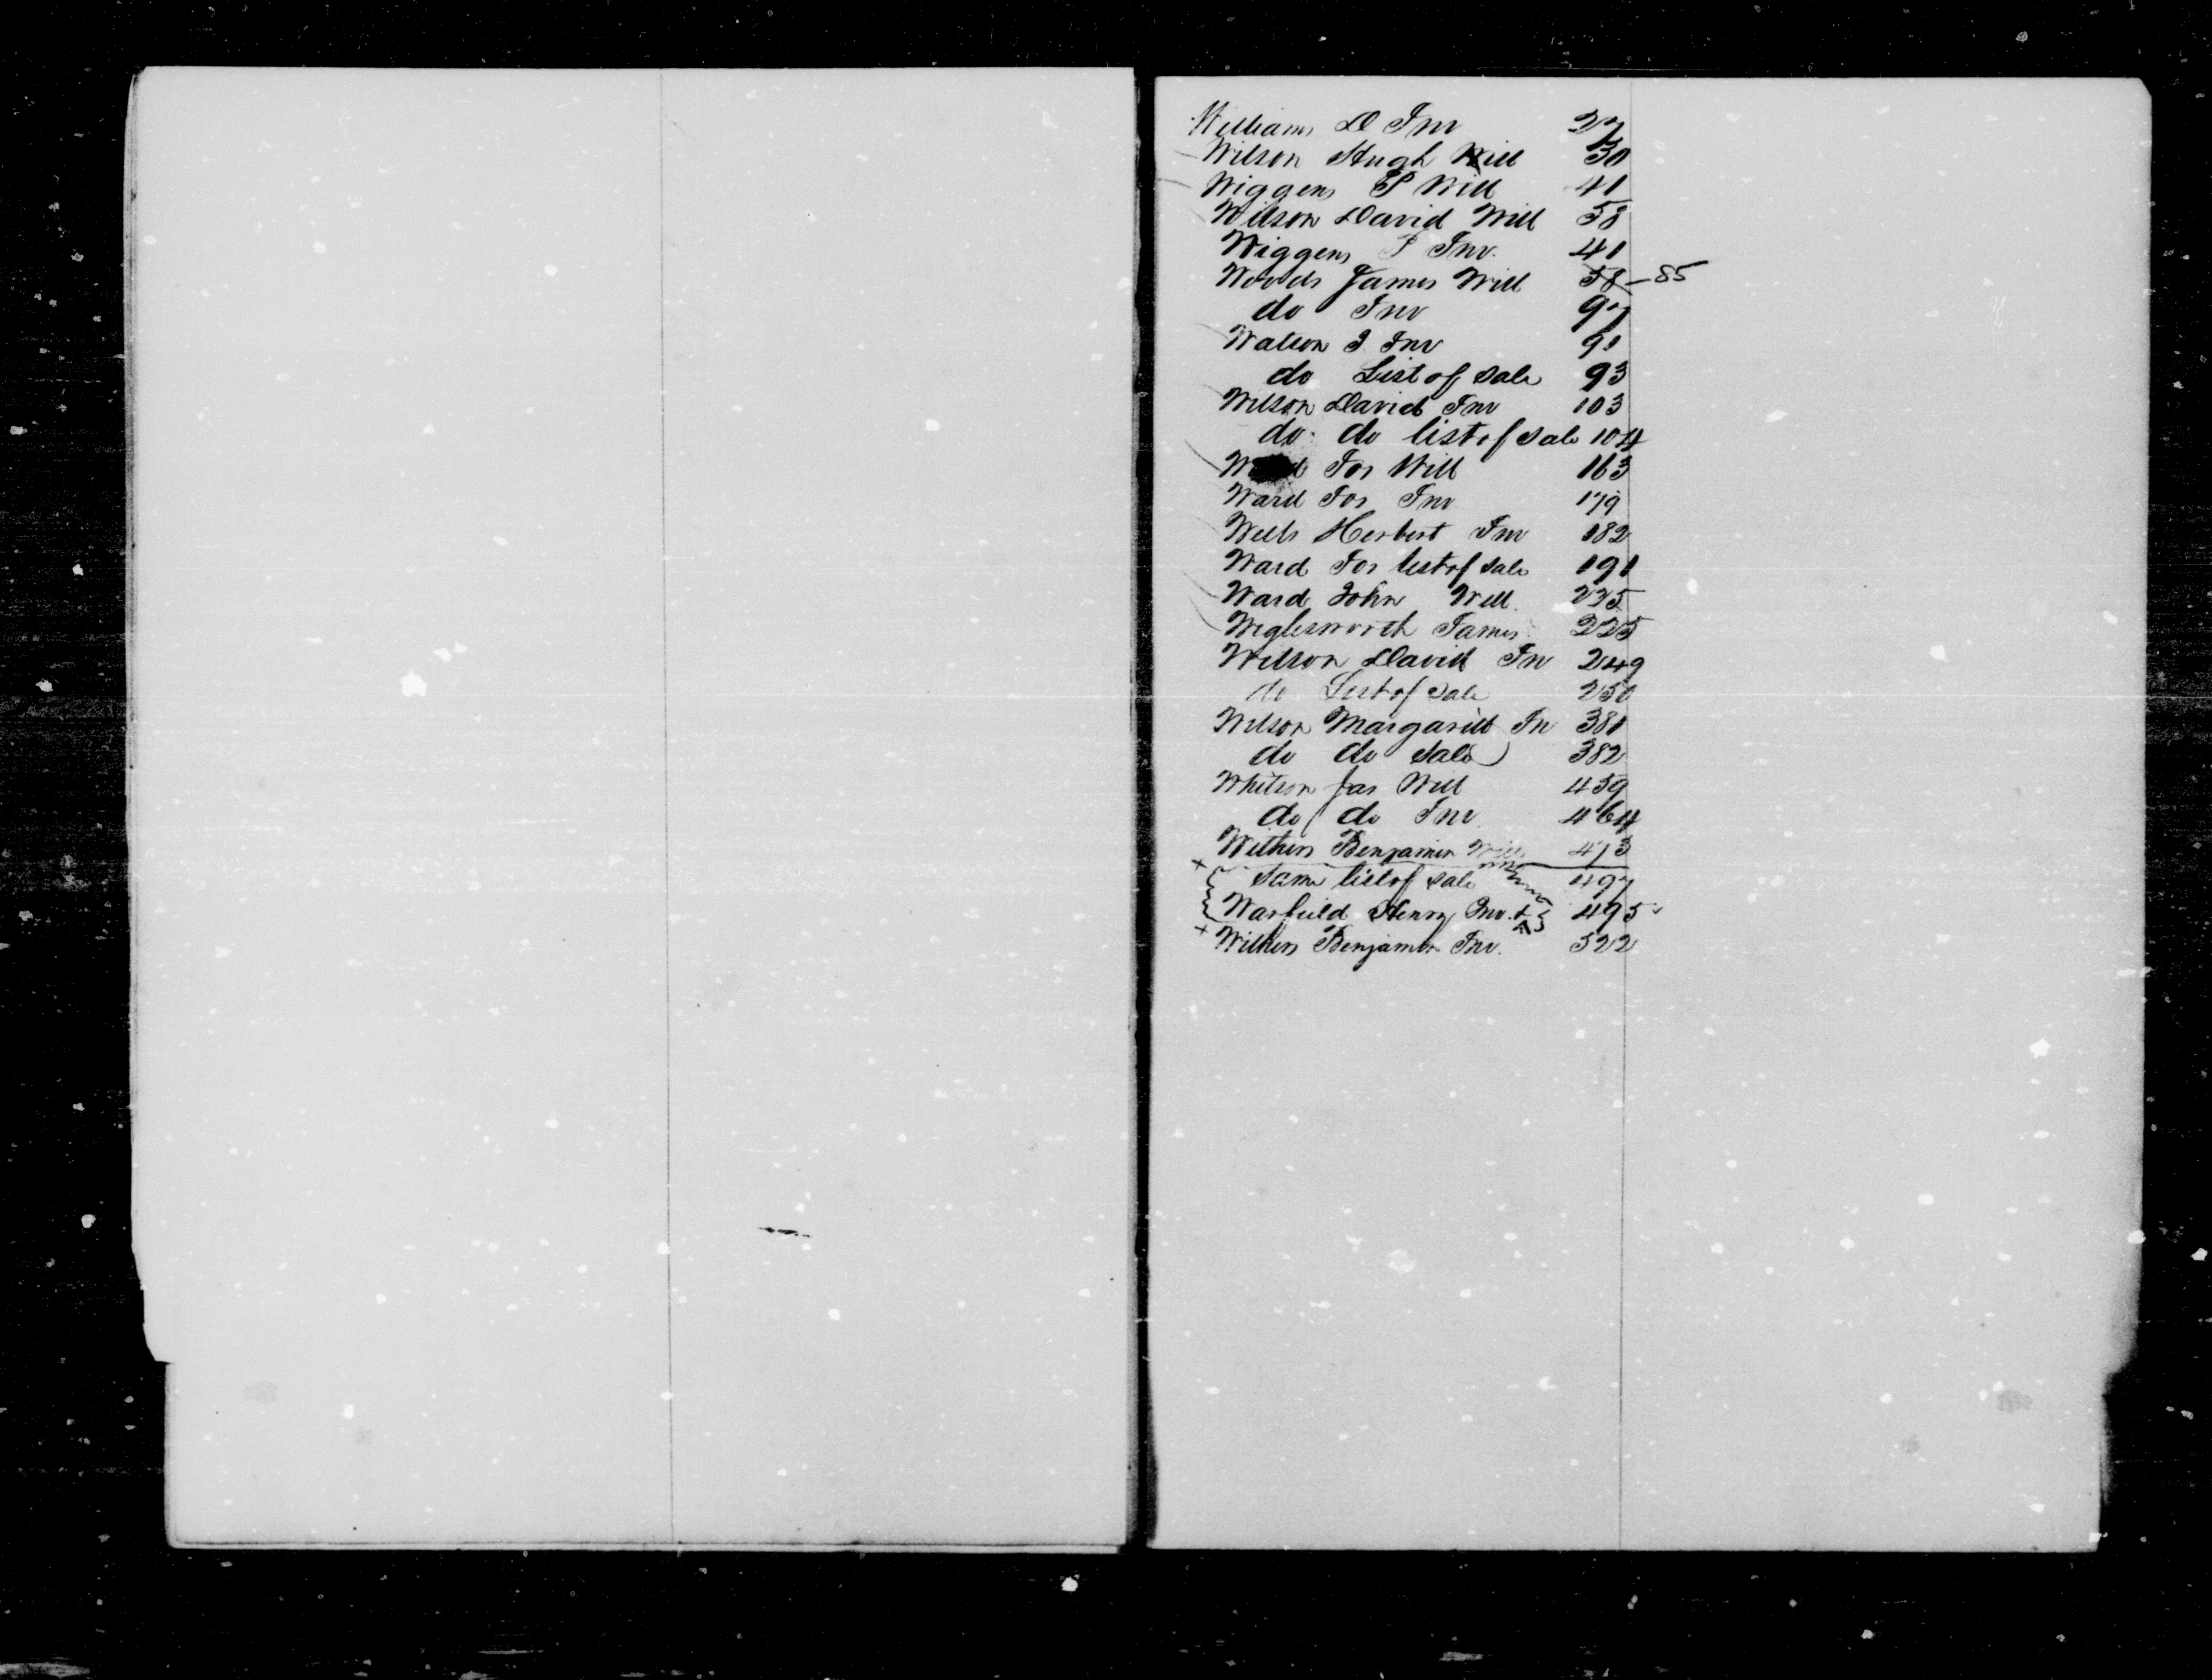 Williams D Inv 27
Wilson Hugh Will 30
Wiggens P Will 41
Wilson David Will 58
Wiggens P Inv. 41
Woods James Will 58 - 85
do Inv 97
Watson J Inv 91
do List of Sale 93
Wilson David Inv 103
do do list of sale 104
Jos Will 163
Ward Jos Inv 179
Wells Herbert Inv 182
Ward Jos list of sale 191
Ward John Will 225
Wiglesworth James 225
Wilson David In 249
do List of Sale 250
Wilson Margarett In 381
do do Sale 382
Whitson Jas Will 459
do do Inv 464
Withers Benjamin Will 473
Same list of Sale 497
Warfield Henry Inv. 495
Withers Benjamin Inv. 522